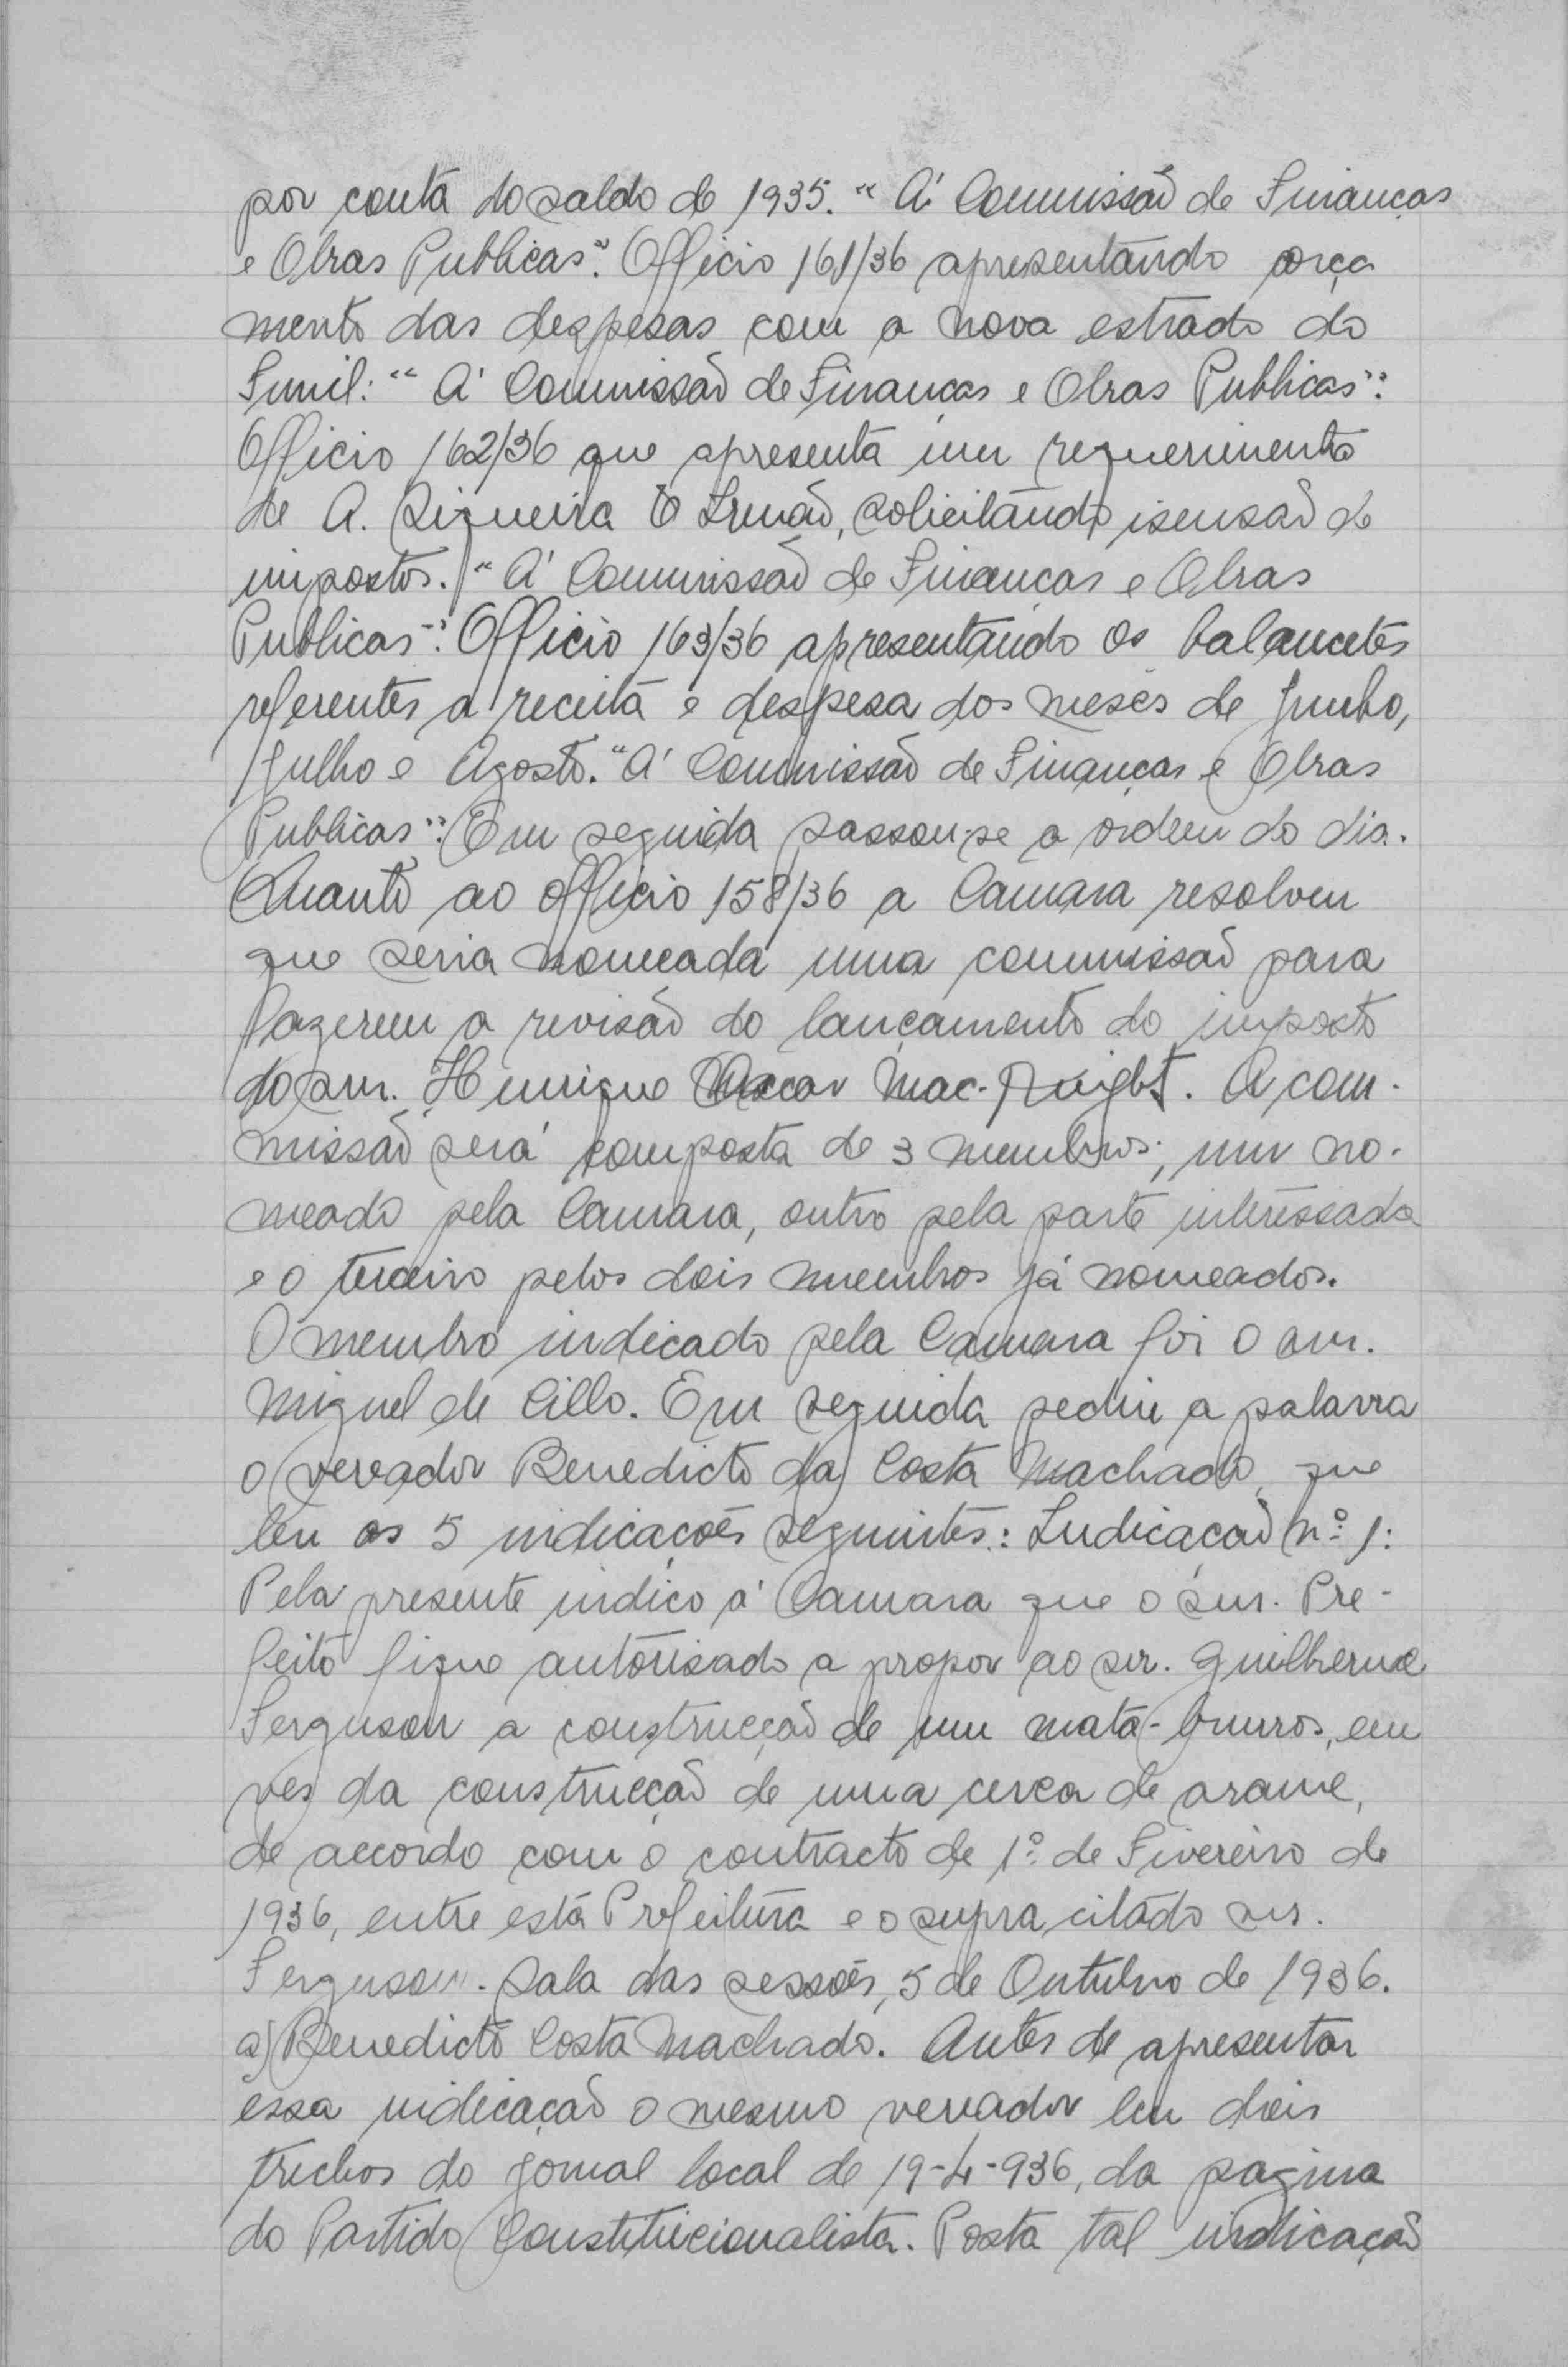 por conta do saldo de 1935. "A' Commissão de Finanças
e Obras Publicas". Officio 161/36 apresentando orça
mento das despesas com a nova estrada do
Funil: "A' Commissão de Finanças e Obras Publicas":
Officio 162/36 que apresenta um requerimento
de A. Siqueira & Irmão, solicitando isensão de
impostos. "A' Commissão de Finanças e Obras
Publicas": Officio 163/36 apresentando os balancetes
referentes a receita e despesa dos meses de Junho,
Julho e Agosto. "A' Commissão de Finanças e Obras
Publicas": Em seguida passou-se a ordem do dia.
Quanto ao officio 158/36 a Camara resolveu
que seria nomeada uma commissão para
fazerem a revisão do lançamento do imposto
do snr. Henrique Oscar Mac-Knight. A com-
missão será composta de 3 membros; um no-
meado pela Camara, outro pela parte interessada
e o terceiro pelos dois membros já nomeados.
O membro indicado pela Camara foi o snr.
Miguel de Cillo. Em seguida pediu a palavra
o vereador Benedicto da Costa Machado, que
leu as 5 indicações seguintes: Indicação nº 1:
Pela presente indico á Camara que o snr. Pre-
feito fique autorisado a propor ao sr. Guilherme
Ferguson a construcção de um mata-burros, em
ves da construcção de uma cerca de arame,
de accordo com o contracto de 1º de Fivereiro de
1936, entre esta Prefeitura e o supra citado snr.
Ferguson. Sala das sessões, 5 de Outubro de 1936.
a) Benedicto Costa Machado. Antes de apresentar
essa indicação o mesmo vereador leu dois
trechos do jornal local de 19-4-936, da pagina
do Partido Constitucionalista. Posta tal indicação